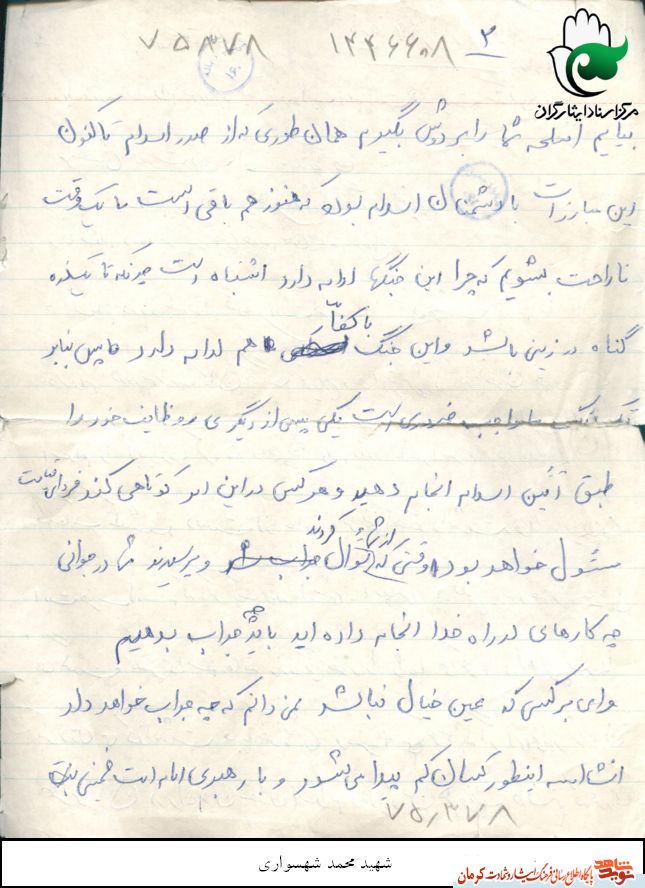 ۷۵۳۷۸ ۱۴۴۶۶۰۸ ۳
مرکز اسناد ایثارگران
بیایم اسلحه شما را بر دوش بگیرم همان طوری که از صدر اسلام تا کنون
این مبارزات با دشمنان اسلام بوده که هنوز هم باقی است ما یک وقت
ناراحت بشویم که چرا این جنگها ادامه دارد اشتباه است چونکه تا یکذره
گناه در زمین باشد و این جنگ با کفار هم ادامه دارد پس بنابر
تک تک ما واجب ضروری است یکی پس از دیگری وظایف خود را
طبق آئین اسلام انجام دهید و هر کس در این امر کوتاهی کند فردای قیامت
مسئول خواهد بود وقتی که از شما سؤال کردند و پرسیدند شما در جوانی
چه کارهای در راه خدا انجام داده اید باید چه جواب بدهیم
وای بر کسی که عین خیال نباشد نمی دانم که چه جواب خواهد داد
انشاءالله اینطور کسان کم پیدا می شود و با رهبری امام امت خمینی
۷۵٫۳۷۸
شهید محمد شهسواری
نوید شاهد
پایگاه اطلاع رسانی فرهنگ ایثار و شهادت کرمان